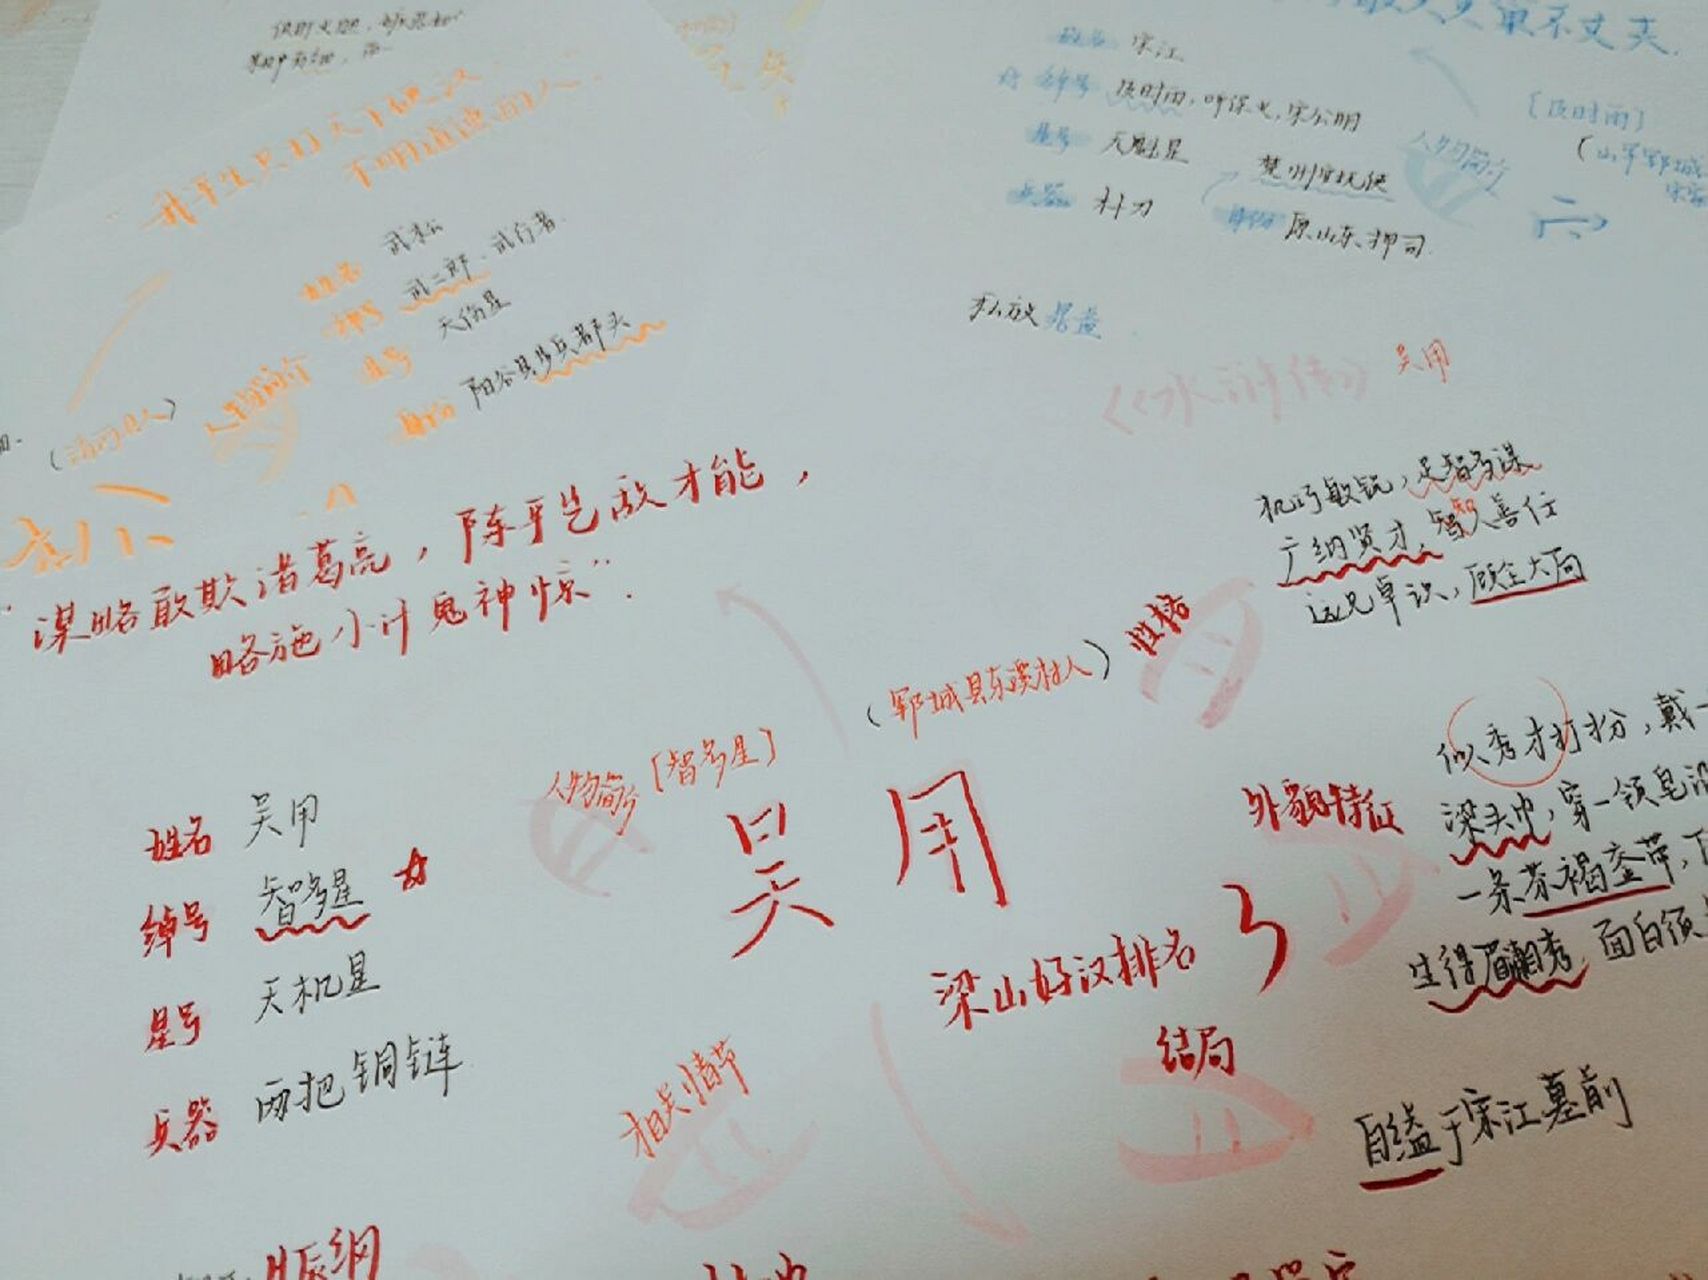 敢笑黄巢不丈夫
姓名 宋江
绰号 及时雨,呼保义,宋公明
星号 天魁星
兵器 朴刀
楚州安抚使
身份 原山东押司
人物简介
[及时雨]
(山东郓城
私放晁盖
《水浒传》 吴用
“我平生只打天下硬汉,
不明道德的人”
姓名 武松
绰号 武二郎、武行者
星号 天伤星
身份 阳谷县步兵都头
人物简介
(清河县人)
“谋略敢欺诸葛亮,陈平岂敌才能,
略施小计鬼神惊”.
机巧敏锐,足智多谋
广纳贤才,智人善任
远见卓识,顾全大局
性格
(郓城县东溪村人)
人物简介 [智多星]
吴用
姓名 吴用
绰号 智多星
星号 天机星
兵器 两把铜链
外貌特征
似秀才打扮,戴一
梁头巾,穿一领皂沿
一条茶褐銮带,下
生得眉清目秀,面白须
梁山好汉排名 3
结局
自缢于宋江墓前
相关情节